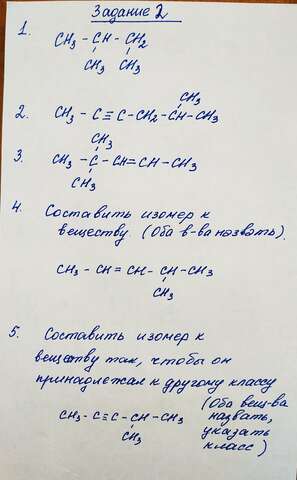 Задание 2
1. CH₃ – CH – CH₂
CH₃ CH₃
CH₃
2. CH₃ – C ≡ C – CH₂ – CH – CH₃
CH₃
3. CH₃ – C – CH = CH – CH₃
CH₃
4. Составить изомер к
веществу. (Оба в-ва назвать).
CH₃ – CH = CH – CH – CH₃
CH₃
5. Составить изомер к
веществу так, чтобы он
принадлежал к другому классу
(Оба вещ-ва
назвать,
указать
класс)
CH₃ – C ≡ C – CH – CH₃
CH₃